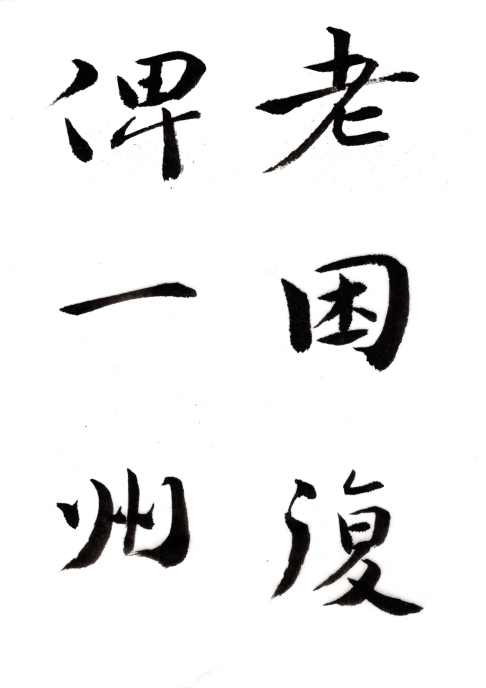 老困復
俾一州